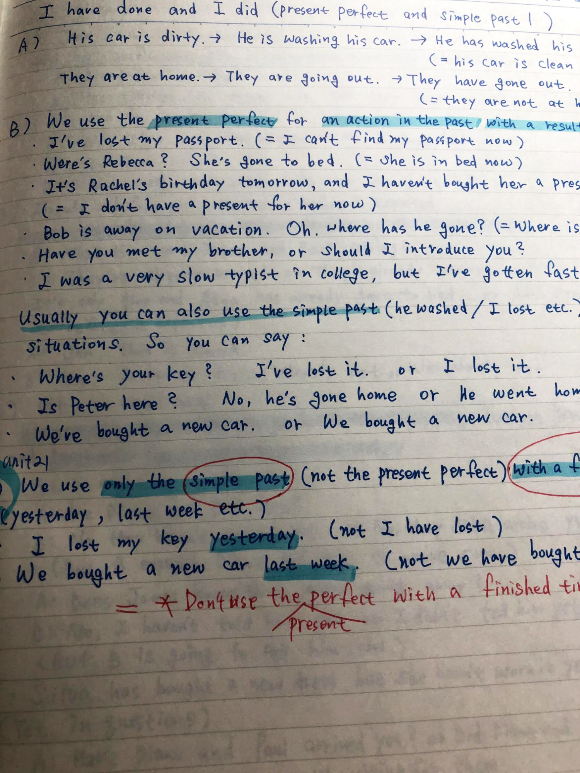 I have done and I did (present perfect and simple past 1)
A) His car is dirty. → He is washing his car. → He has washed his
(= his car is clean
They are at home. → They are going out. → They have gone out.
(= they are not at h
B) We use the present perfect for an action in the past with a result
· I've lost my passport. (= I can't find my passport now)
· Were's Rebecca? She's gone to bed. (= she is in bed now)
· It's Rachel's birthday tomorrow, and I haven't bought her a pres
(= I don't have a present for her now)
· Bob is away on vacation. Oh, where has he gone? (= where is
· Have you met my brother, or should I introduce you?
· I was a very slow typist in college, but I've gotten fast
Usually you can also use the simple past (he washed / I lost etc.)
situations. So you can say :
· Where's your key? I've lost it. or I lost it.
· Is Peter here? No, he's gone home or He went hom
· We've bought a new car. or We bought a new car.
unit 21
We use only the simple past (not the present perfect) with a f
(yesterday, last week etc.)
· I lost my key yesterday. (not I have lost)
We bought a new car last week. (not we have bought
= * Don't use the perfect with a finished ti
present